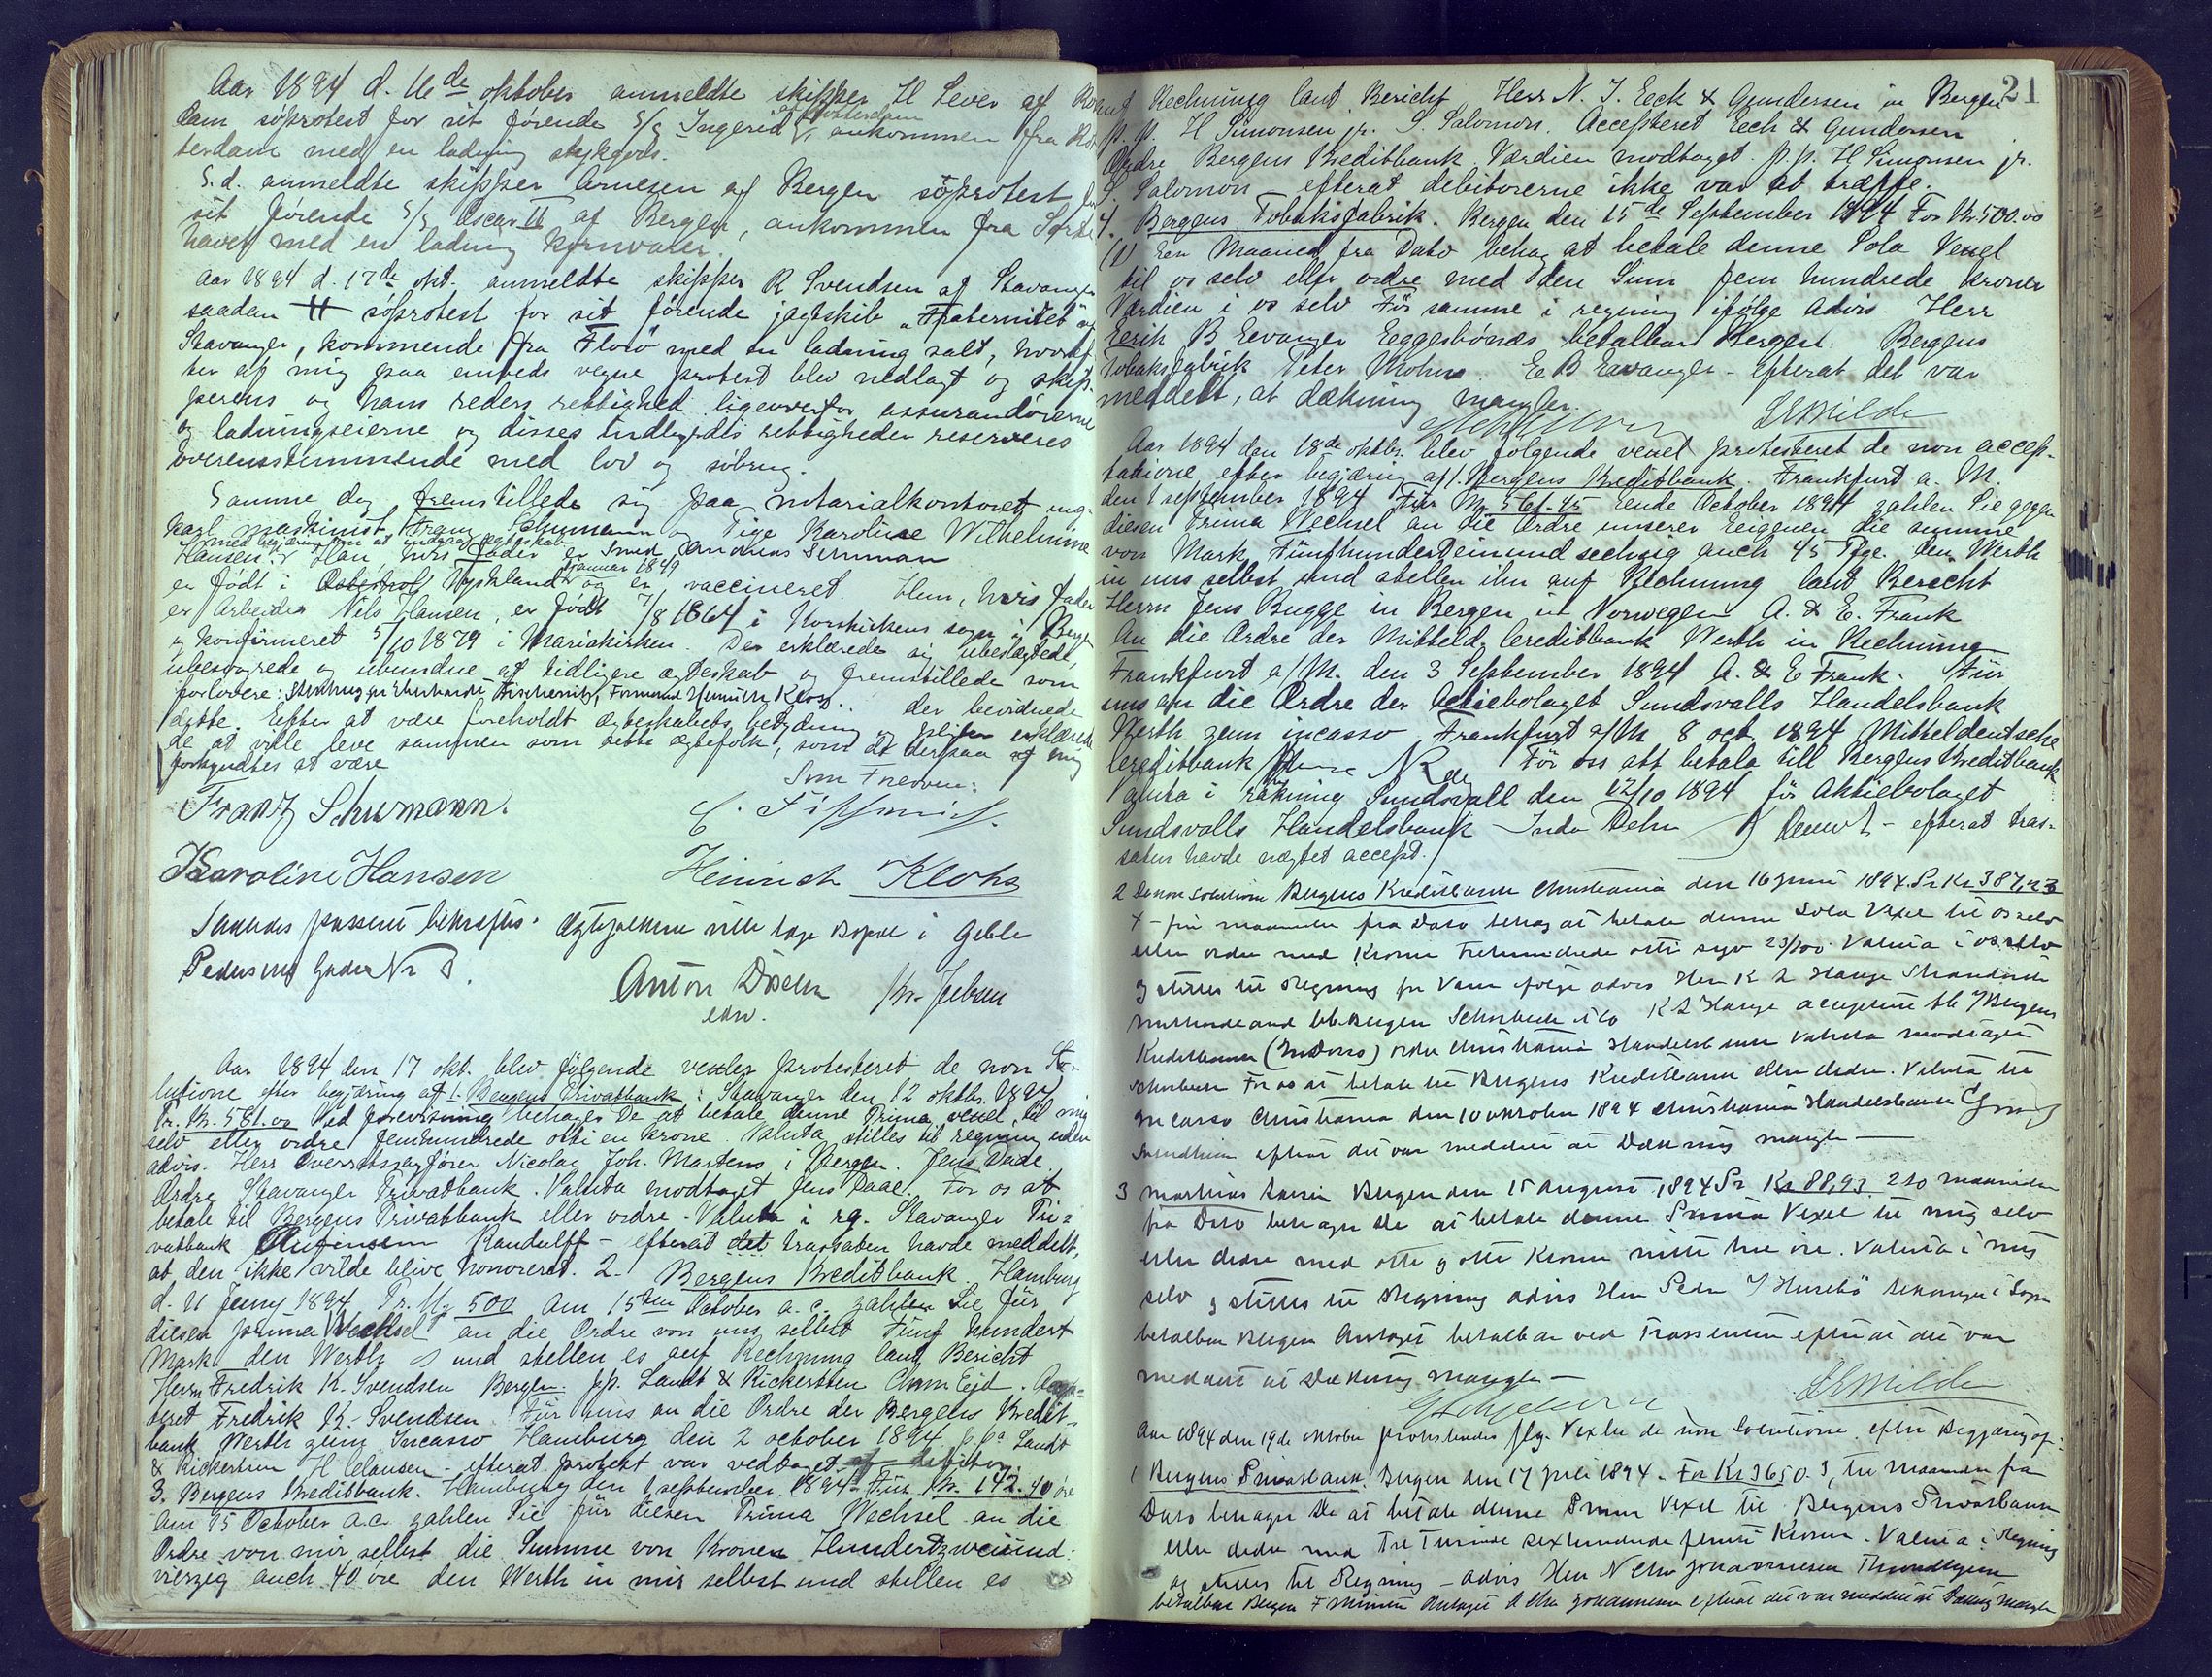 Aar 1894 d. 16de oktober anmeldte skipper H Lever af Rotter
dam söprotest for sit förende S/S Ingerid af Rotterdam, ankommen fra Rot
terdam med en ladning stykgods.
S. d. anmeldte skipper Arnesen af Bergen söprotest for
sit förende S/S Oscar II af Bergen, ankommen fra Sorte
havet med en ladning kornvarer.
Aar 1894 d. 17de okt. anmeldte skipper R Svendsen af Stavanger
saadan söprotest for sit förende jagtskib „Fraternitet" af
Stavanger, kommende fra Florö med en ladning salt, hvoref-
ter af mig paa embeds vegne protest blev nedlagt og skip-
perens og hans reders rettighed ligeoverfor assurandörerne
og ladningseierne og disses indbyrdes rettigheder reserveres
overensstemmende med lov og söbrug.
Samme dag fremstillede sig paa notarialkontoret ung-
karl maskinist Franz Schumann og Pige Karoline Wilhelmine
Hansen med begjæring om at indgaa ægteskab. Han, hvis fader er Smed Andreas Schuman
er født i Tyskland januar 1849 og er vaccineret. Hun, hvis fader
er Arbeider Nils Hansen, er født 7/8 1864 i Korskirkens sogn i Bergen
og konfirmeret 5/10 1879 i Mariakirken. De erklærede sig ubeslægtede,
ubesvogrede og ubundne af tidligere ægteskab og fremstillede som
forlovere:
der bevidnede
dette. Efter at være foreholdt ægteskabets betydning og pligter erklærede
de at ville leve sammen som rette ægtefolk, som de derpaa af mig
forkyndtes at være
Som Forlover:
Franz Schumann.
Karoline Hansen
Heinrich Klohs
Saaledes passeret bekræftes. Ægtefolkene ville tage Bopæl i Geble
Pedersens Gade Nr 8.
Anton
edsv.
Aar 1894 den 17 okt. blev følgende vexler protesteret de non So-
lutione efter begjæring af 1. Bergens Privatbank: Stavanger den 12 oktbr. 1894
Pr. Kr. 581.00 Ved forevisning behager De at betale denne Prima vexel til mig
selv eller ordre femhundrede otti en krone. Valuta stilles til regning uden
advis. Herr Overretssagfører Nicolay Joh. Martens i Bergen. Jens Daae.
Ordre Stavanger Privatbank. Valuta modtaget Jens Daae. For os at
betale til Bergens Privatbank eller ordre. Valuta i rg. Stavanger Pri-
vatbank Kandulff – efterat det trassaten havde meddelt,
at den ikke vilde blive honoreret. 2. Bergens Kreditbank. Hamburg
d. 11 Juny 1894 Pr. M. 500 Am 15ten October a. c. zahlen Sie für
diesen prima Wechsel an die Ordre von uns selbst Fünf hundert
Mark den Werth und stellen es auf Rechnung laut Bericht
Herrn Fredrik K. Svendsen Bergen. pp. Landt & Rickertsen
teret Fredrik K. Svendsen. Für uns an die Ordre der Bergens Kredit-
bank Werth zum Incasso Hamburg den 2 october 1894 p.pa Landt
& Rickertsen H Clausen – efterat protest var vedtaget af debitor.
3. Bergens Kreditbank. Hamburg den 1 september 1894 Für Kr. 142.40 öre
Am 15 October a.c. zahlen Sie für diesen Prima Wechsel an die
Ordre von mir selbst die Summe von Kronen Hundertzweiund-
vierzig auch 40 öre den Werth in mir selbst und stellen es
21
auf Rechnung laut Bericht Herr N. J. Eeck & Gundersen in Bergen
p. p. H Simonsen jr. S. Salomon. Accepteret Eeck & Gundersen
Ordre Bergens Kreditbank. Værdien modtaget. p.p. H Simonsen jr.
S. Salomon – efterat debitorerne ikke var at træffe.
4. Bergens Tobaksfabrik. Bergen den 15de September 1894 For Kr. 500.00
(1) Een Maaned fra Dato behag at betale denne Sola Vexel
til os selv eller ordre med den Sum fem hundrede kroner
Værdien i os selv För samme i regning ifølge advis. Herr
Eerik B Eevanger Eeggesbønæs betalbar Bergen. Bergens
Tobaksfabrik Peter Mohn. E B Eevanger – efterat det var
meddelt, at dækning mangler.
LEMilde
Aar 1894 den 18de oktbr. blev følgende vexel protesteret de non accep-
tatione efter begjæring af 1. Bergens Kreditbank. Frankfurt a. M.
den 1 september 1894 Für M. 561.45 Ende October 1894 zahlen Sie gegen
diesen Prima Wechsel an die Ordre unserer Eeigenen die summe
von Mark Fünfhunderteinundsechzig auch 45 Pfge. den Werth
in uns selbst und stellen ihn auf Rechnung laut Bericht
Herrn Jens Bugge in Bergen in Norwegen A. & E. Frank
An die Ordre der Mitteld. Creditbank Werth in Rechnung
Frankfurt a/M. den 3 September 1894 A. & E Frank. Für
uns an die Ordre der Actiebolaget Sundsvalls Handelsbank
Werth zum incasso Frankfurt a/M 8 oct 1894 Mitteldeutsche
Creditbank För oss att betala till Bergens Kreditbank
Valuta i räkning Sundsvall den 12/10 1894 för Aktiebolaget
Sundsvalls Handelsbank – efterat tras-
saten havde nægtet accept.
2 De non solutione Bergens Kreditbank Christiania den 16 juni 1894. Pr Kr 387,23
4 – fire maaneder fra Dato behag at betale denne Sola Vexel til os selv
eller ordre med Kroner Trehundrede otti syv 23/100. Valuta i os selv
og stilles til Regning for Varer ifølge advis Herr K L Hauge Strandvik
betalbar Bergen K L Hauge accepteret bb i/ Bergens
Kreditbank (Indoss) ordre Christiania Handelsbank Valuta modtaget
For os at betale til Bergens Kreditbank eller ordre. Valuta til
Incasso Christiania den 10 oktober 1894 Christiania Handelsbank
efterat det var meddelt at Dækning mangler —
3 Bergen den 15 august 1894 Pr Kr 88,93. 2 to maaneder
fra Dato behager De at betale denne Prima Vexel til mig selv
eller ordre med otte og otti Kroner nitti tre öre. Valuta i mig
selv og stilles til Regning advis Herr Peder J Husebö Lekanger i Sogn
betalbar Bergen Antaget betalbar ved Trassenten efterat det var
meddelt at Dækning mangler —
LEMilde
Aar 1894 den 19de oktober protesteredes flg. Vexler de non Solutione, efter Begjæring af:
1 Bergens Privatbank. Bergen den 17 juli 1894. For Kr 3650. 3, tre Maaneder fra
Dato behager De at betale denne Prima Vexel til Bergens Privatbank
eller ordre med Tre Tusinde sexhundrede femti Kroner. Valuta i Regning
og stilles til Regning – advis Herr N Chr Johannesen Throndhjem
betalbar Bergen Antaget N Chr Johannesen efterat det var meddelt at Dækning mangler